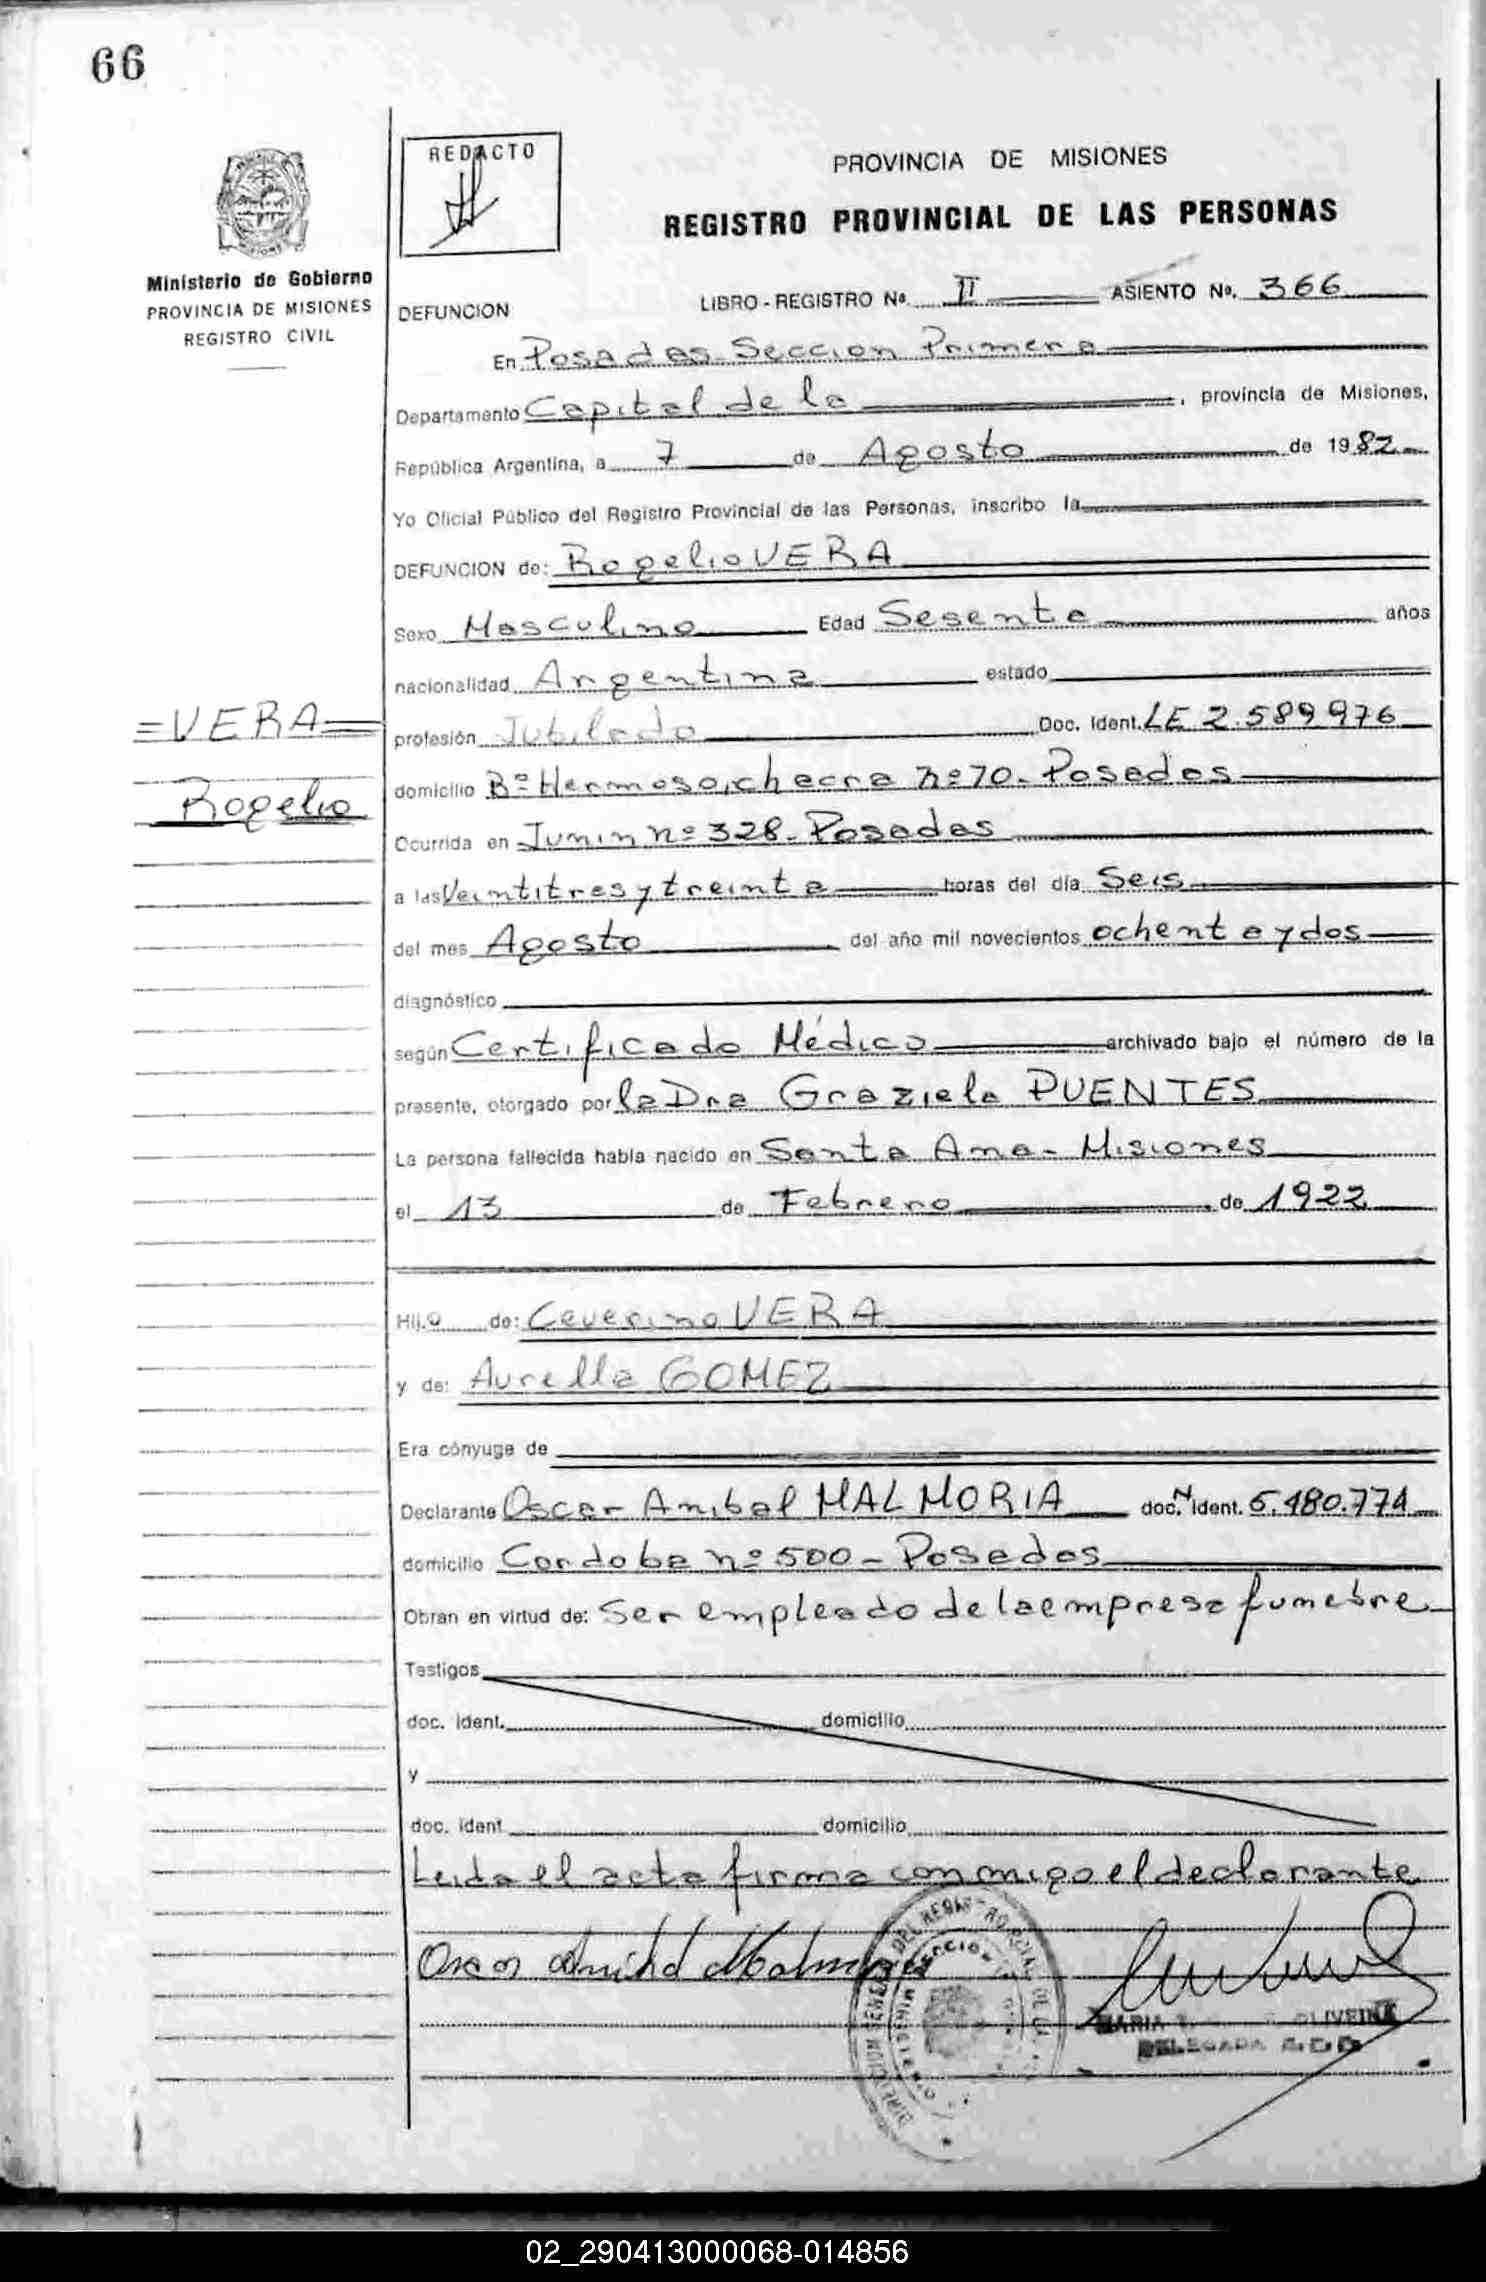 66
REDACTO
PROVINCIA DE MISIONES
REGISTRO PROVINCIAL DE LAS PERSONAS
Ministerio de Gobierno
PROVINCIA DE MISIONES
REGISTRO CIVIL
DEFUNCION
LIBRO - REGISTRO Nº. II ASIENTO Nº. 366
En Posadas Seccion Primera
Departamento Capital de la , provincia de Misiones,
República Argentina, a 7 de Agosto de 1982
Yo Oficial Público del Registro Provincial de las Personas, inscribo la
DEFUNCION de: Rogelio VERA
Sexo Masculino Edad Sesenta años
nacionalidad Argentina estado
=VERA=
profesión Jubilado Doc. Ident. LE 2.589.976
Rogelio
domicilio Bº Hermoso, chacra nº 70 - Posadas
Ocurrida en Junin nº 328 - Posadas
a las Veintitres y treinta horas del día Seis
del mes Agosto del año mil novecientos ochenta y dos
diagnóstico
según Certificado Médico archivado bajo el número de la
presente, otorgado por la Dra Graziela PUENTES
La persona fallecida había nacido en Santa Ana - Misiones
el 13 de Febrero de 1922
Hijo de: Ceverino VERA
y de: Aurella GOMEZ
Era cónyuge de
Declarante Oscar Anibal MALMORIA doc. N ident. 5.480.774
domicilio Cordoba nº 500 - Posadas
Obran en virtud de: Ser empleado de la empresa funebre
Testigos
doc. ident. domicilio
y
doc. ident domicilio
Leida el acta firma conmigo el declarante
Oscar Anibal
MARIA OLIVEIRA
DELEGADA
02_290413000068-014856